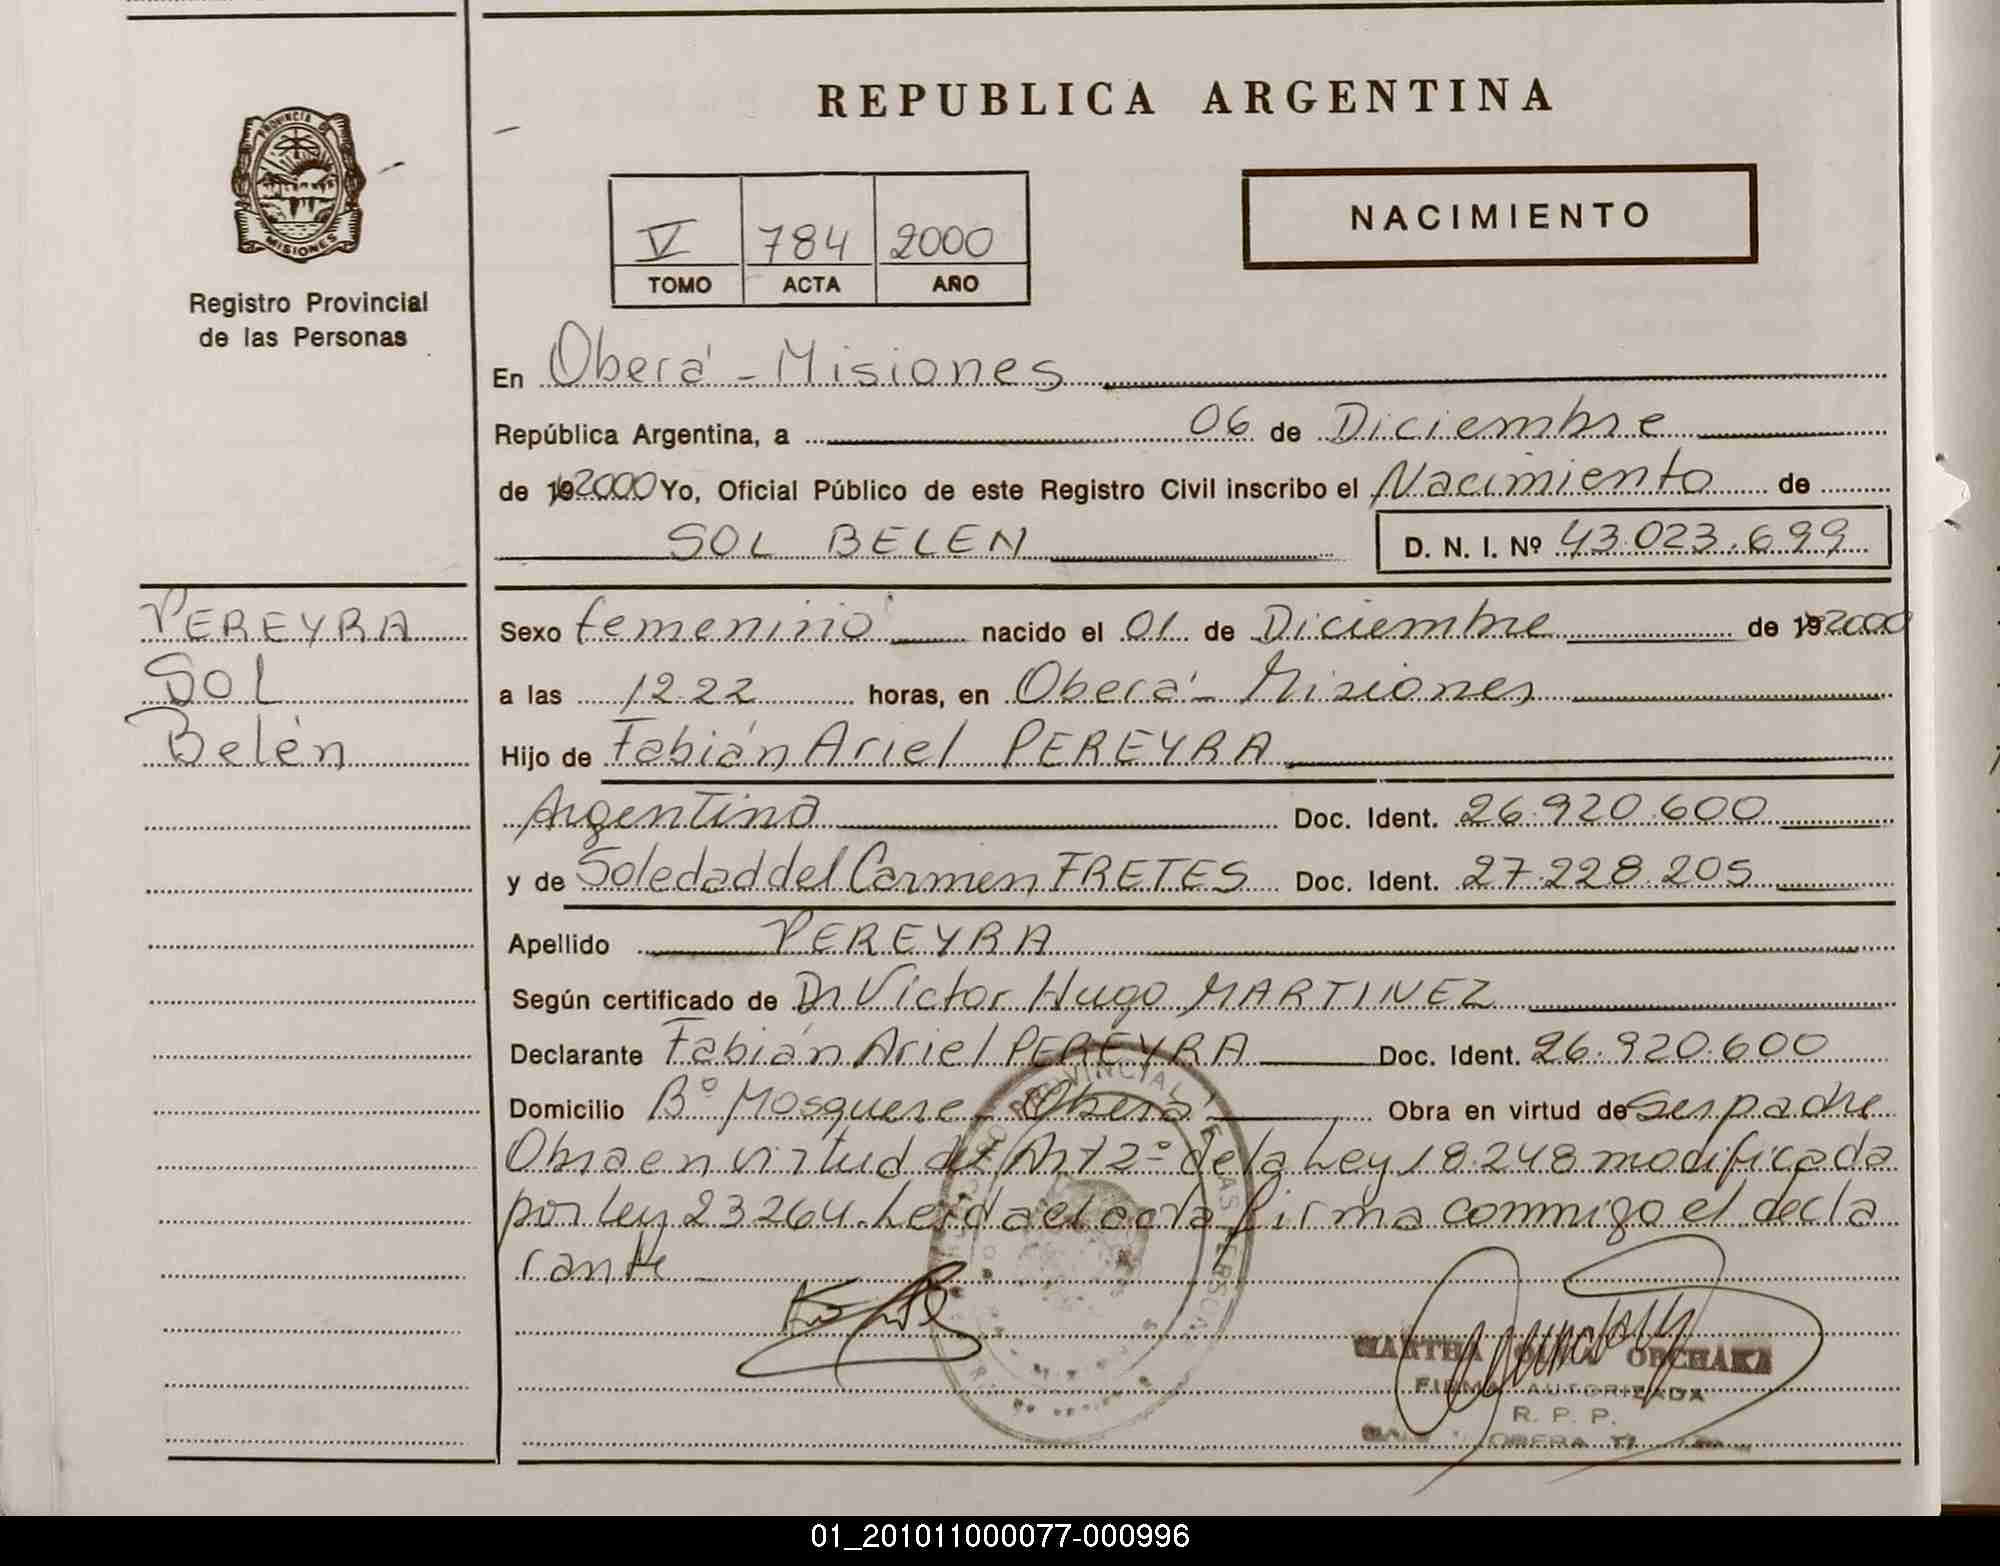 REPUBLICA ARGENTINA
PROVINCIA DE
MISIONES
Registro Provincial
de las Personas
V 784 2000
TOMO ACTA AÑO
NACIMIENTO
En Oberá - Misiones
República Argentina, a 06 de Diciembre
de 19 2000 Yo, Oficial Público de este Registro Civil inscribo el Nacimiento de
SOL BELEN D. N. I. Nº 43.023.699
PEREYRA
Sol
Belén
Sexo femenino nacido el 01 de Diciembre de 19 2000
a las 12.22 horas, en Oberá - Misiones
Hijo de Fabián Ariel PEREYRA
Argentina Doc. Ident. 26.920.600
y de Soledad del Carmen FRETES Doc. Ident. 27.228.205
Apellido PEREYRA
Según certificado de Dr Victor Hugo MARTINEZ
Declarante Fabián Ariel PEREYRA Doc. Ident. 26.920.600
Domicilio Bº Mosquere - Oberá Obra en virtud de Ser padre
Obra en virtud del Art 2º de la Ley 18.248 modificada
por ley 23264. Leida el acta firma conmigo el decla
rante
MARTHA ORCHAKA
FIRMA AUTORIZADA
R. P. P.
OBERA
01_201011000077-000996